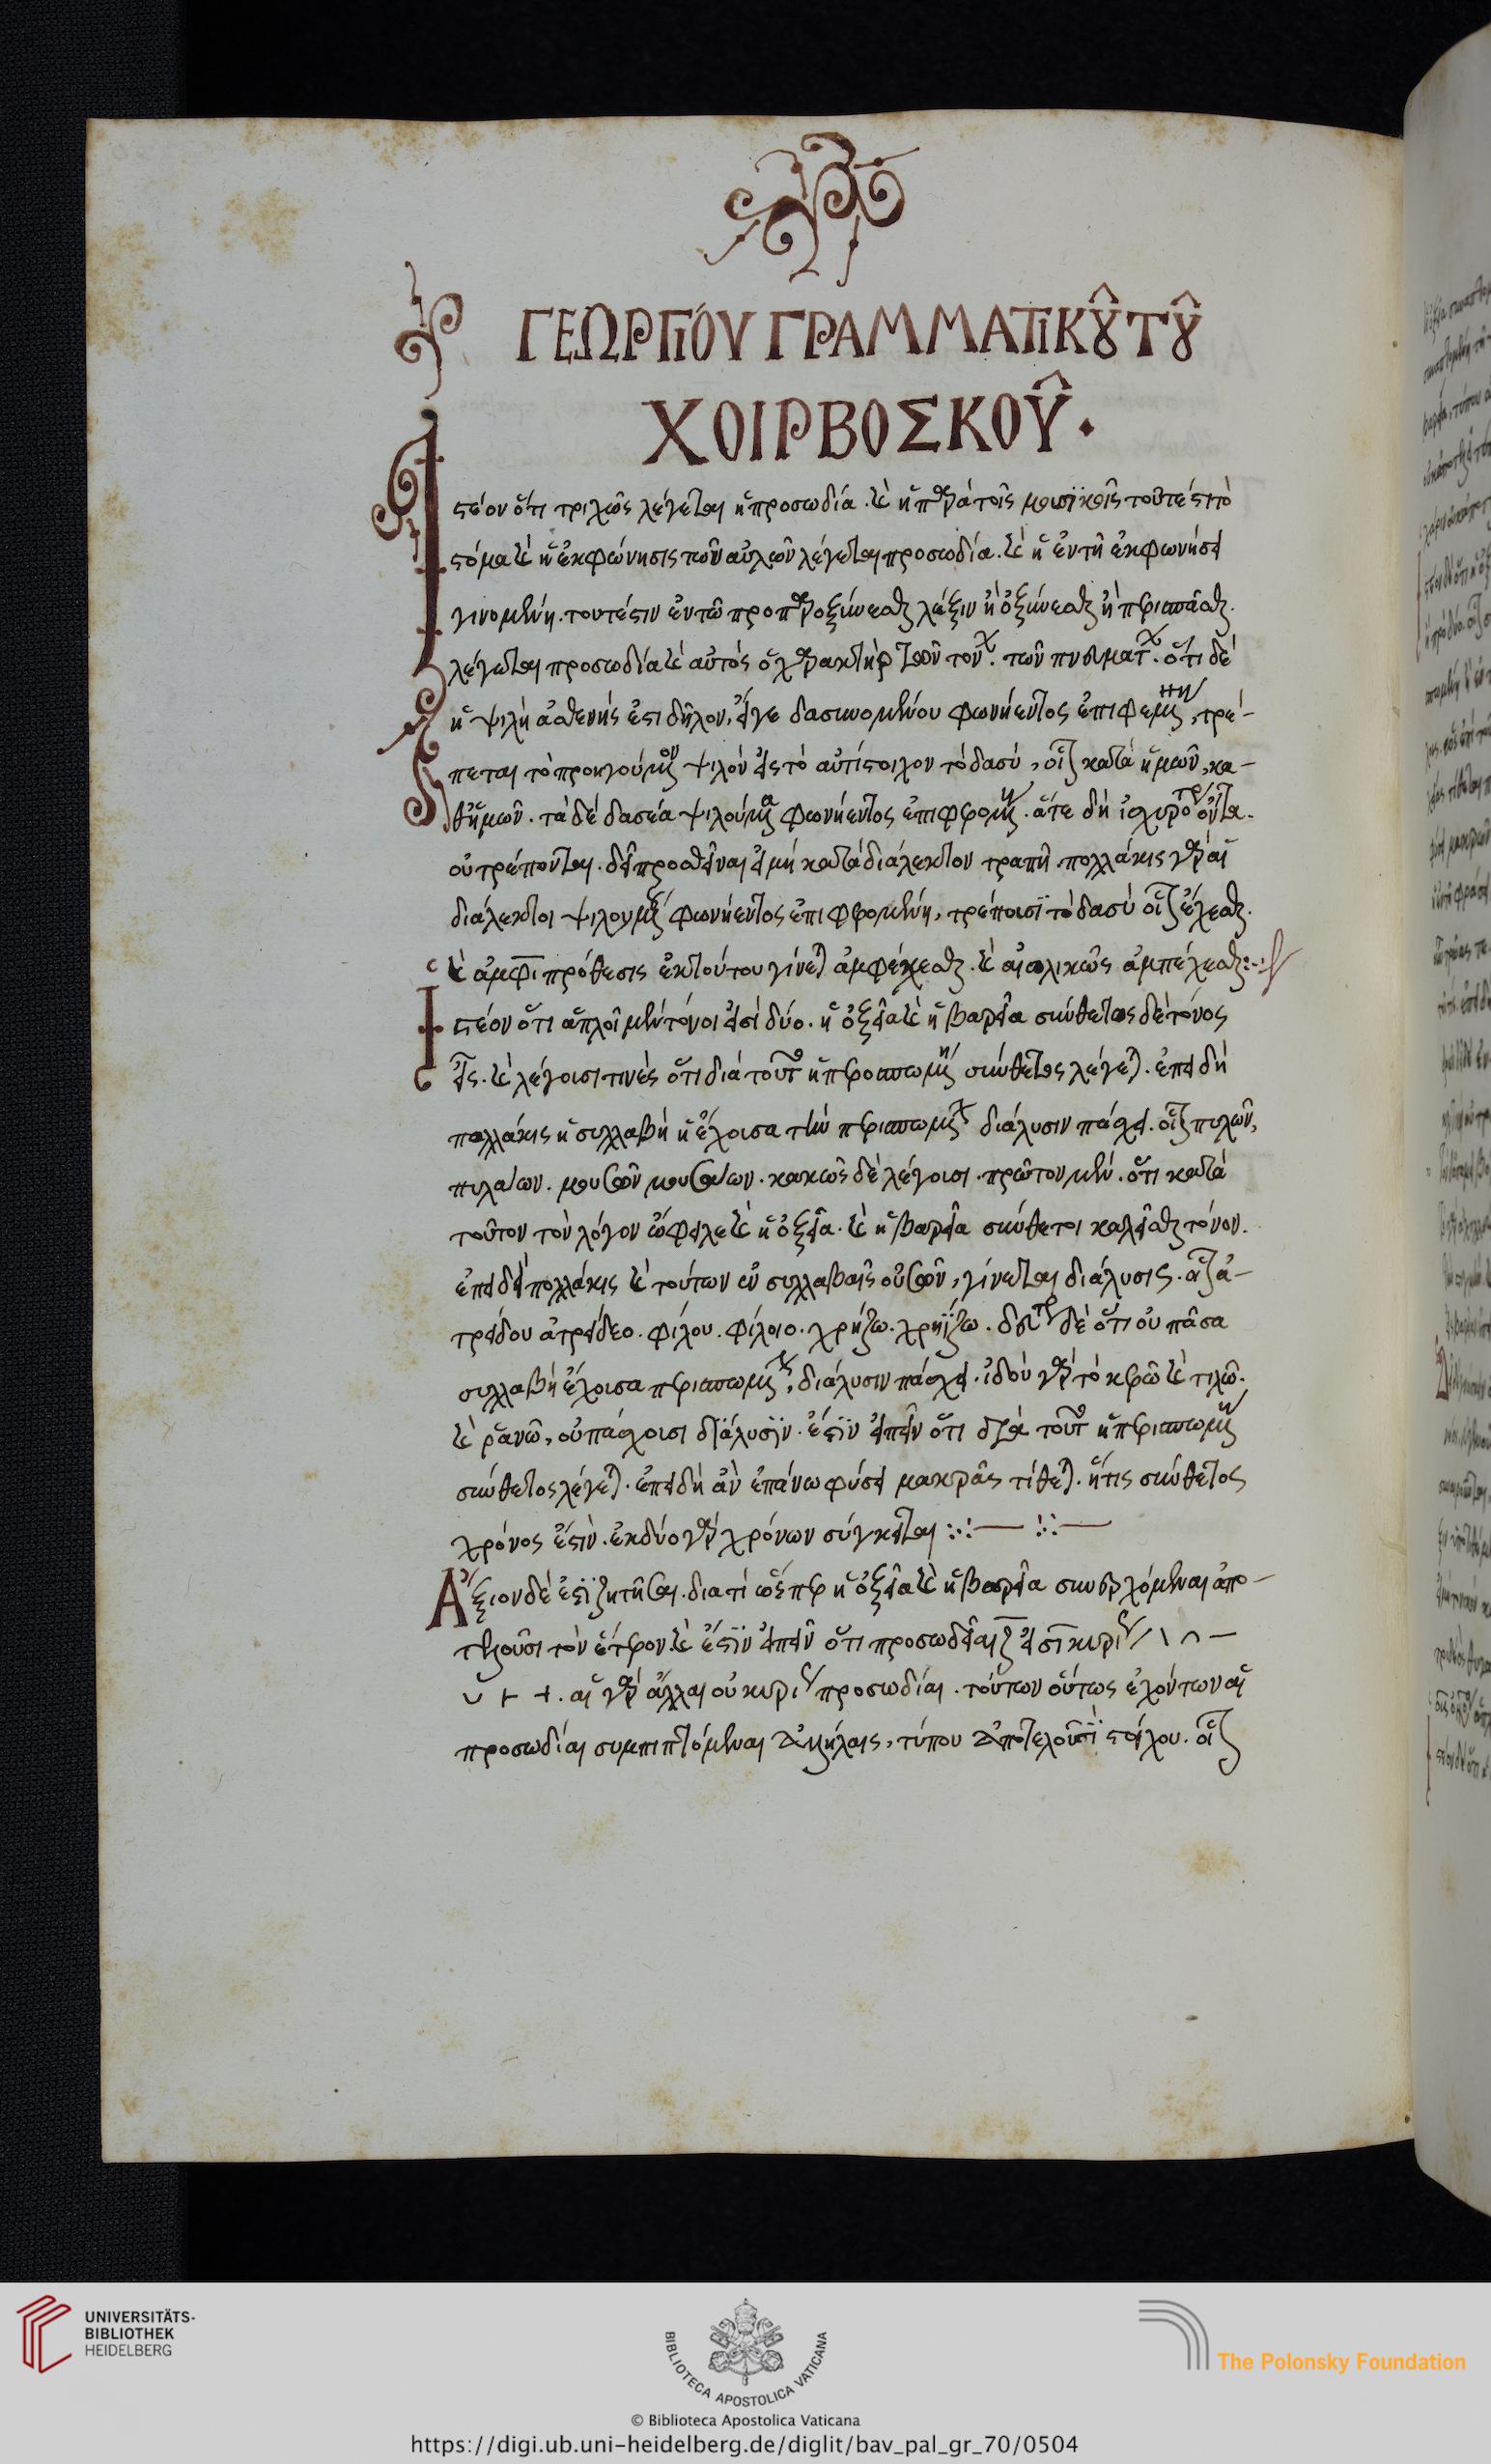 ΓΕΩΡΓΙΟΥ ΓΡΑΜΜΑΤΙΚΟῦ Τοῦ
ΧΟΙΡΒΟΣΚΟΥ͂.
Ιστέον ὅτι τριχῶς λέγεται ἡ προσωδία. καὶ ἡ παρὰ τοῖς μουσικοῖς τουτέστι τὸ
στόμα καὶ ἡ ἐκφώνησις τῶν αὐλῶν λέγεται προσωδία. καὶ ἡ ἐν τῆ ἐκφωνήσει
γινομένη. τουτέστιν ἐν τῶ προπαροξύνεσθαι λέξιν ἢ ὀξύνεσθαι ἢ περισπᾶσθαι.
λέγεται προσωδία καὶ αὐτὸς ὁ χαρακτὴρ τῶν τόν. τῶν πνευμάτ. ὅτι δὲ
ἡ ψιλὴ ἀσθενής ἐστι δῆλον, εἴγε δασυνομένου φωνήεντος ἐπιφερομένη, τρέ-
πεται τὸ προηγούμενον ψιλὸν εἰς τὸ ἀντίστοιχον τὸ δασύ, οἷον κατὰ ἡμῶν, κα-
θ᾽ ἡμῶν. τὰ δὲ δασέα ψιλούμενα φωνήεντος ἐπιφερομένη. ἅτε δὴ ἰσχυρότερ ὄντα.
οὐ τρέπονται. δεῖ προσθεῖναι εἰ μὴ κατὰ διάλεκτον τραπῆ. πολλάκις γὰρ αἱ
διάλεκτοι ψιλουμένου φωνήεντος ἐπιφερομένην, τρέπουσι τὸ δασύ οἷον ἔχεσθαι.
καὶ ἀμφὶ πρόθεσις ἐκ τούτου γίνεται ἀμφέχεσθαι. καὶ αἰολικῶς ἀμπέχεσθαι:-
Ιστέον ὅτι ἁπλοῖ μὲν τόνοι εἰσὶ δύο. ἡ ὀξεῖα καὶ ἡ βαρεῖα σύνθετος δὲ τόνος
εἷς. καὶ λέγουσί τινὲς ὅτι διὰ τοῦτο ἡ περισπωμένη σύνθετος λέγεται. ἐπειδὴ
πολλάκις ἡ συλλαβὴ ἡ ἔχουσα τὴν περισπωμένην διάλυσιν πάσχει. οἷον πυλῶν,
πυλάων. μουσῶν μουσάων. κακῶς δὲ λέγουσι. πρῶτον μέν. ὅτι κατὰ
τοῦτον τὸν λόγον ὤφειλε καὶ ἡ ὀξεῖα. καὶ ἡ βαρεῖα σύνθετοι καλεῖσθαι τόνον.
ἐπειδὴ πολλάκις καὶ τούτων ἐν συλλαβαῖς οὐσῶν, γίνεται διάλυσις. οἷον ἀ-
τρείδου ἀτρείδεο. φίλου. φίλοιο. χρήζω. χρηΐζω. δεύτερον δὲ ὅτι οὐ πᾶσα
συλλαβὴ ἔχουσα περισπωμένην, διάλυσιν πάσχει. ἰδοὺ γὰρ τὸ κερῶ καὶ τιλῶ.
καὶ ῥανῶ, οὐ πάσχουσι διάλυσιν. ἔστιν εἰπεῖν ὅτι διὰ τοῦτο ἡ περισπωμένη
σύνθετος λέγεται. ἐπειδὴ ἂν ἐπάνω φύσει μακρᾶς τίθεται. ἥτις σύνθετος
χρόνος ἐστίν. ἐκ δύο γὰρ χρόνων σύγκειται :·:— :·:—
Ἄξιον δέ ἐστι ζητῆσαι. διατί ὥσπερ ἡ ὀξεῖα καὶ ἡ βαρεῖα συνερχόμεναι ἀπο-
τελοῦσι τὸν ἕτερον καὶ ἔστιν εἰπεῖν ὅτι προσωδίαι ζ εἰσὶ κυρι / \ ⌒ —
⏑ ⊢ ⊣. αἱ γὰρ ἄλλαι οὐ κυρι προσωδίαι. τούτων οὕτως ἐχόντων αἱ
προσωδίαι συμπιπτόμεναι ἀλλήλαις, τύπον ἀποτελοῦσι στοίχου. οἷον
UNIVERSITÄTS-
BIBLIOTHEK
HEIDELBERG
BIBLIOTECA APOSTOLICA VATICANA
The Polonsky Foundation
© Biblioteca Apostolica Vaticana
https://digi.ub.uni-heidelberg.de/diglit/bav_pal_gr_70/0504